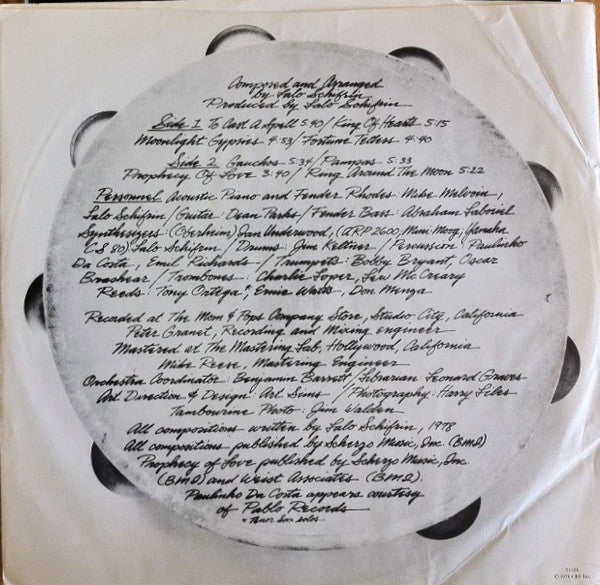 Composed and Arranged
by Lalo Schifrin
Produced by Lalo Schifrin
Side 1 To Cast A Spell 5:40/ King Of Hearts 5:15
Moonlight Gypsies 4:53/ Fortune Tellers 4:40
Side 2 Gauchos 5:34/ Pampas 5:33
Prophecy Of Love 3:40/ Ring Around The Moon 5:22
Personnel Acoustic Piano and Fender Rhodes: Mike Melvoin,
Lalo Schifrin/ Guitar: Dean Parks/ Fender Bass: Abraham Laboriel
Synthesizers: (Oberheim) Ian Underwood, (ARP 2600, Mini Moog, Yamaha
CS 80) Lalo Schifrin / Drums: Jim Keltner / Percussion: Paulinho
Da Costa, Emil Richards / Trumpets: Bobby Bryant, Oscar
Brashear / Trombones: Charlie Loper, Lew McCreary
Reeds: Tony Ortega*, Ernie Watts, Don Menza
Recorded at The Mom & Pops Company Store, Studio City, California
Peter Granet, Recording and Mixing engineer
Mastered at The Mastering Lab, Hollywood, California
Mike Reese, Mastering Engineer
Orchestra Coordinator: Benjamin Barrett/ Librarian Leonard Graves
Art Direction & Design: Art Sims / Photography: Harry
Tambourine Photo: Jim Walden
All compositions written by Lalo Schifrin, 1978
All compositions published by Scherzo Music, Inc. (BMI)
Prophecy of Love published by Scherzo Music, Inc.
(BMI) and Weist Associates (BMI).
Paulinho Da Costa appears courtesy
of Pablo Records
* Tenor Sax solos
© 1978 CBS Inc.